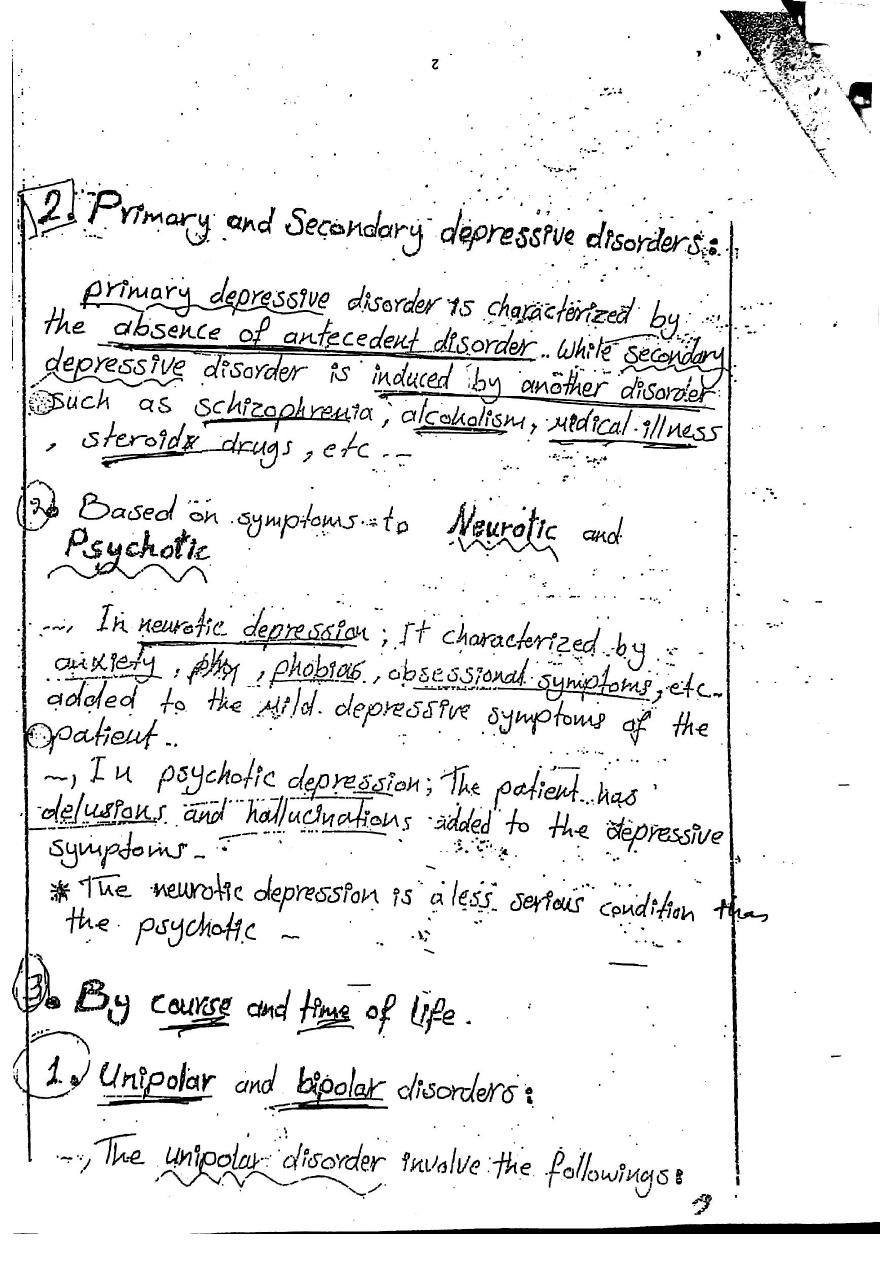 2
2. Primary and Secondary depressive disorders:
primary depressive disorder is characterized by
the absence of antecedent disorder.. while secondary
depressive disorder is induced by another disorder
such as schizophrenia, alcoholism, medical illness
, steroids drugs, etc.
2. Based on symptoms to Neurotic and
Psychotic
In neurotic depression; It characterized by
anxiety, , phobias, obsessional symptoms, etc
added to the mild depressive symptoms of the
patient..
In psychotic depression; The patient has
delusions and hallucinations added to the depressive
symptoms
* The neurotic depression is a less serious condition than
the psychotic
3. By course and time of life.
1. Unipolar and bipolar disorders:
The unipolar disorder involve the followings: